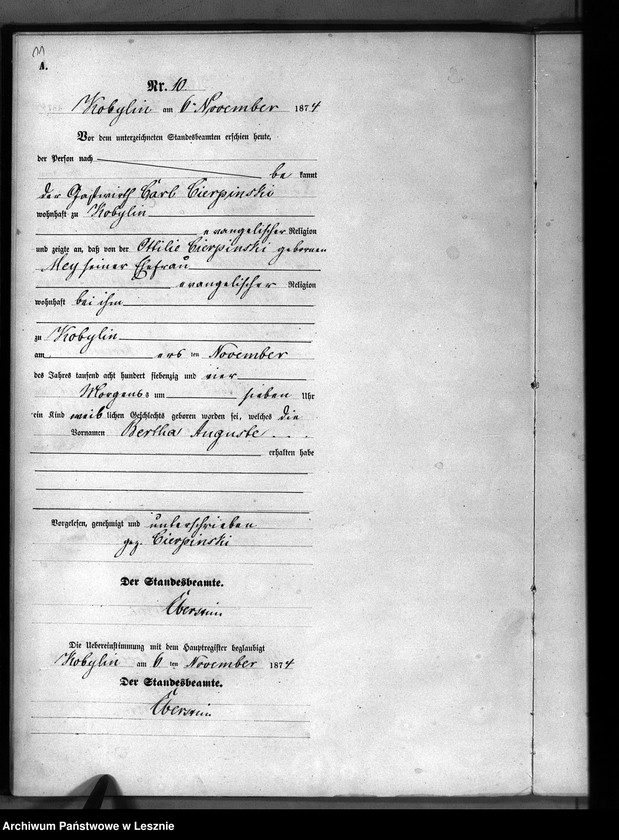 A.
Nr. 10
Kobylin am 6 November 1874
Vor dem unterzeichneten Standesbeamten erschien heute,
der Person nach
be kannt
der Gastwirth Carl Cierpinski
wohnhaft zu Kobylin
evangelischer Religion
und zeigte an, daß von der Ottilie Cierpinski gebornen
Mey seiner Ehefrau
evangelischer Religion
wohnhaft bei ihm
zu Kobylin
am ers ten November
des Jahres tausend acht hundert siebenzig und vier
Morgens um sieben Uhr
ein Kind weiblichen Geschlechts geboren worden sei, welches die
Vornamen Bertha Auguste
erhalten habe
Vorgelesen, genehmigt und unterschrieben
gez. Cierpinski
Der Standesbeamte.
Die Uebereinstimmung mit dem Hauptregister beglaubigt
Kobylin am 6 ten November 1874
Der Standesbeamte.
Archiwum Państwowe w Lesznie